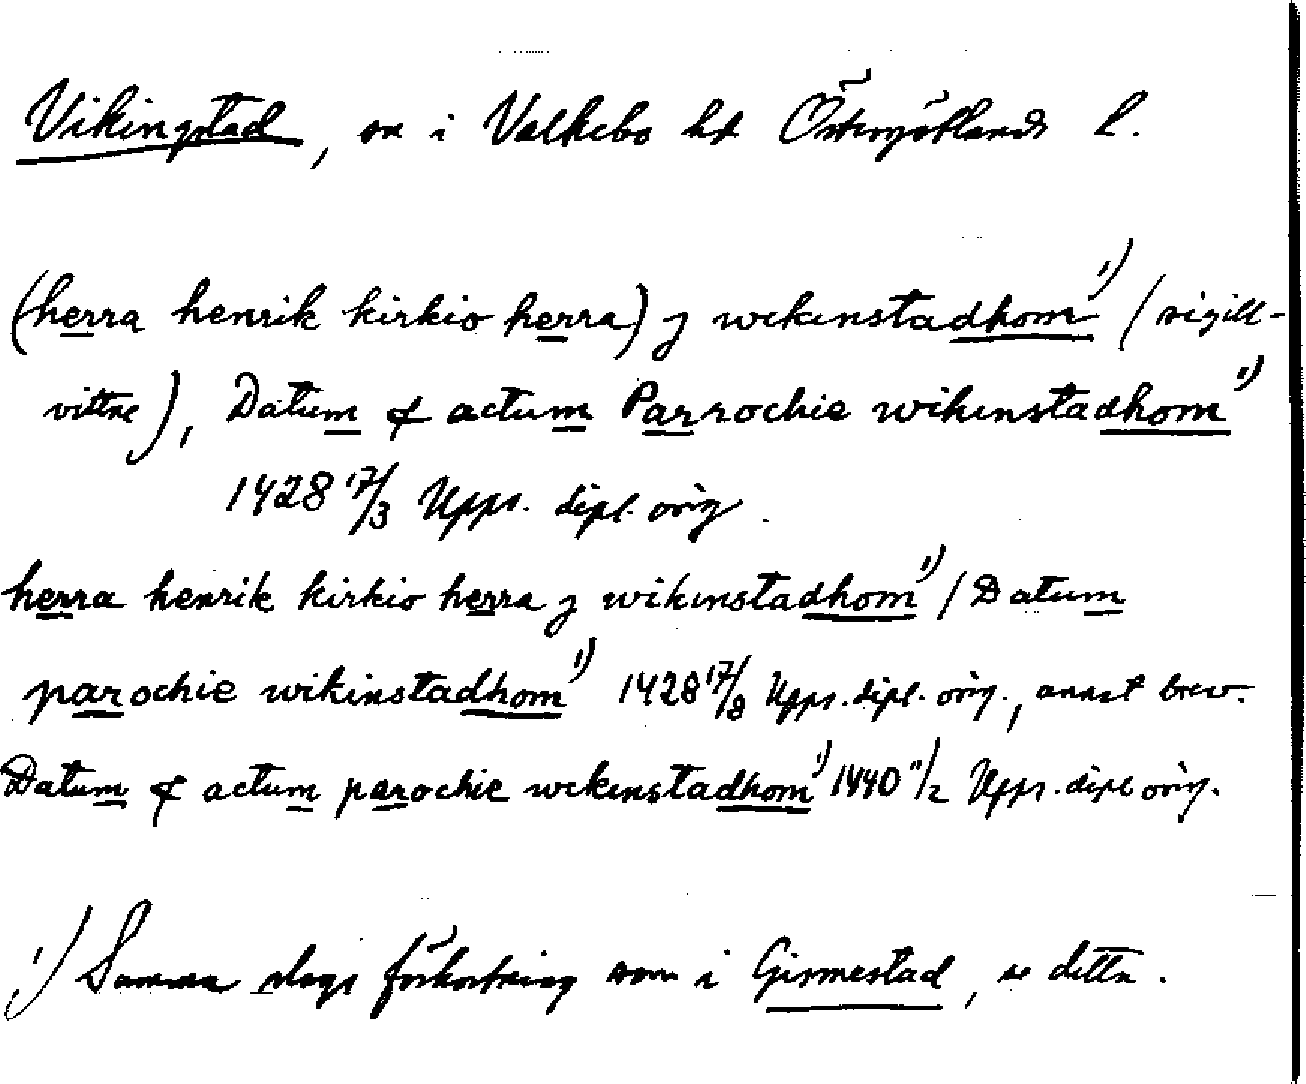 Vikingstad, sn i Valkebo hd Östergötlands l.
(herra henrik kirkio herra) j wikinstadhom 1) (sigill-
vittne), Datum & actum Parrochie wikinstadhom 1)
1428 17/3 Upps. dipl. orig.
herra henrik kirkio herra j wikinstadhom 1) / Datum
parochie wikinstadhom 1) 1428 17/8 Upps. dipl. orig., annat brev.
Datum & actum parochie wikinstadhom 1) 1440 11/2 Upps. dipl orig.
1) Samma slags förkortning som i Gismestad, se detta.